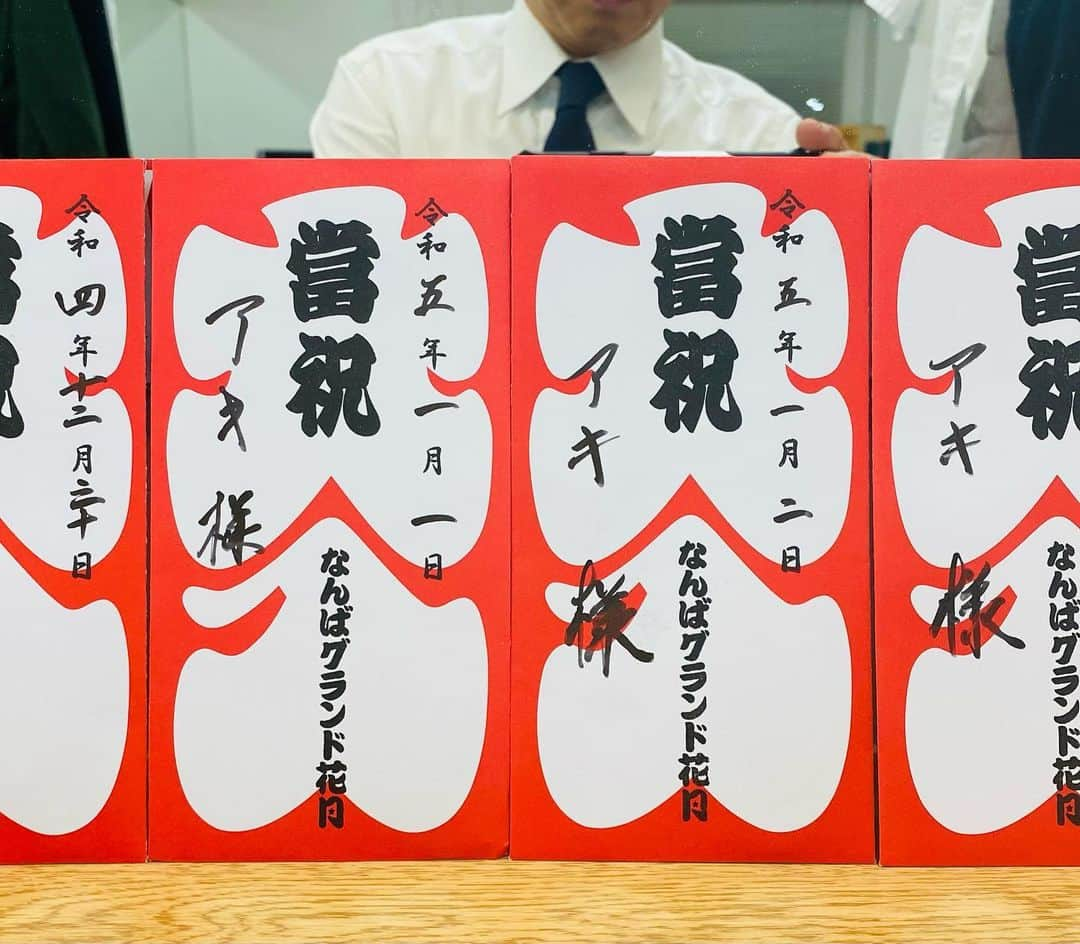 令和四年十二月三十日
當祝
令和五年一月一日
當祝
なんばグランド花月
アキ様
令和五年一月二日
當祝
なんばグランド花月
アキ様
當祝
なんばグランド花月
アキ様